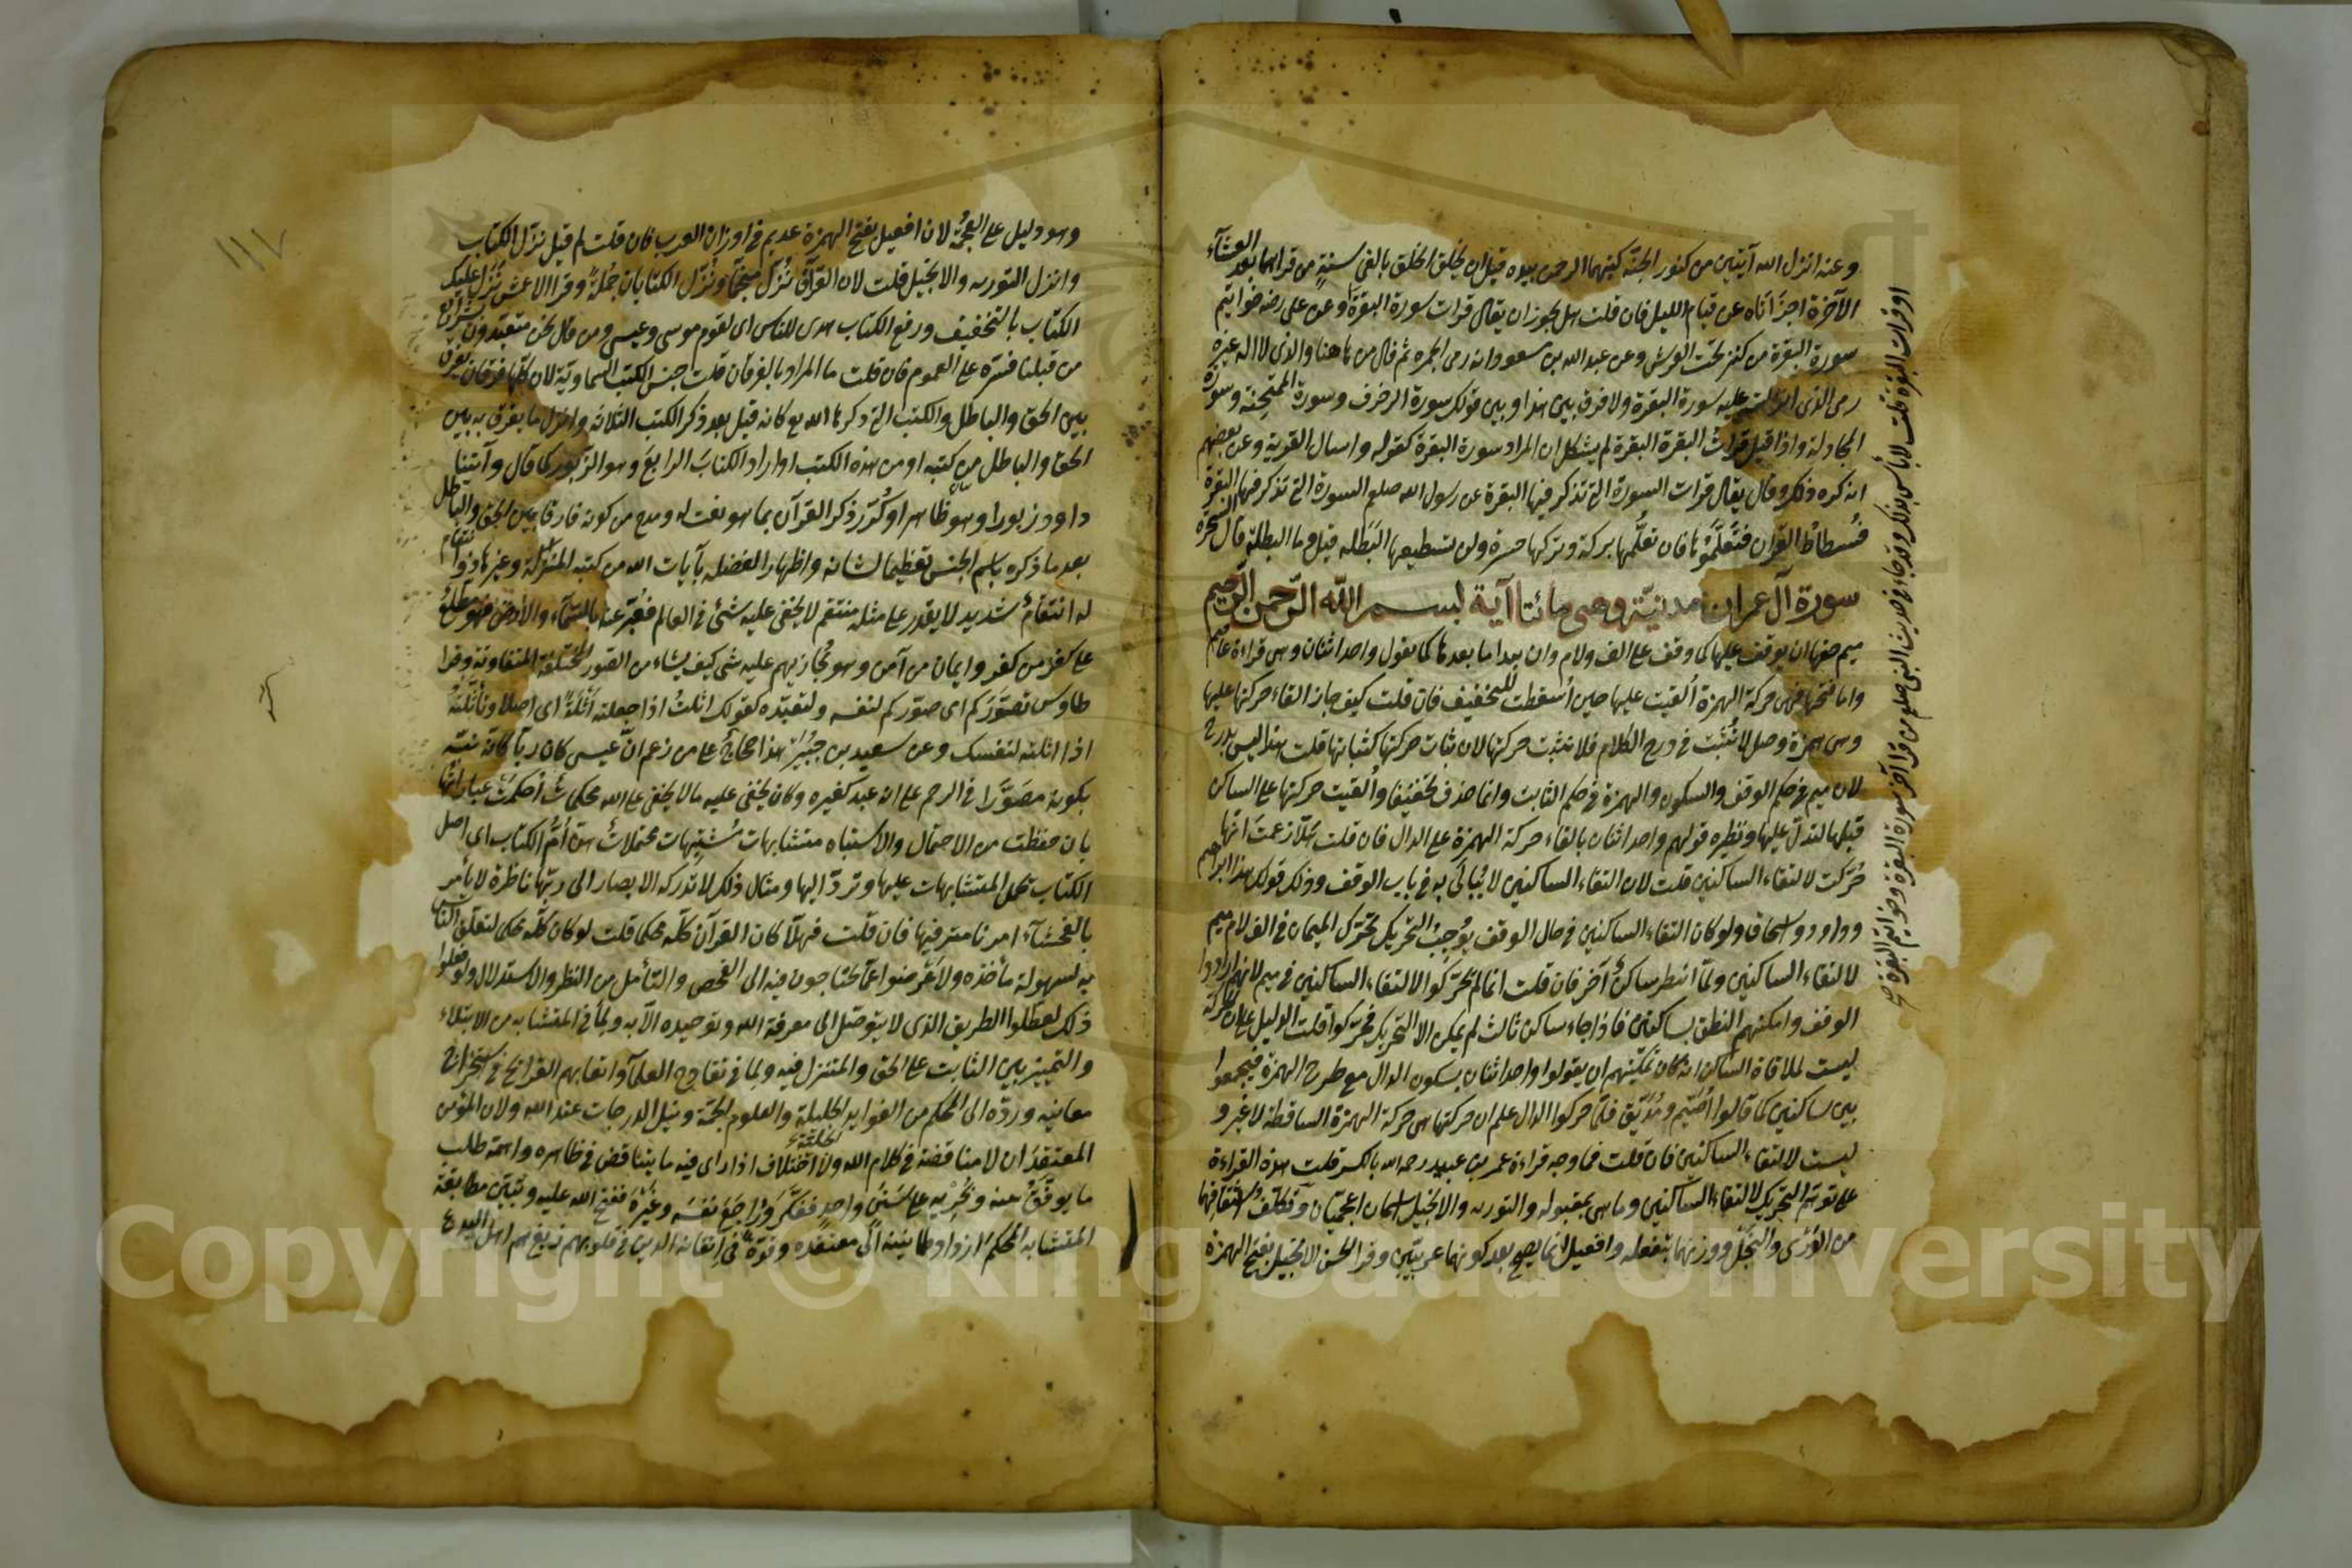 وعنه انزل الله آيتين من كنوز الجنة كتبهما الرحمن بيده قبل ان يخلق الخلق بالفى سنة من قراهما بعد العشاء
الآخرة اجزأتاه عن قيام الليل فان قلت هل يجوز ان يقال قرات سورة البقرة وعن على رضه خواتيم
سورة البقرة من كنز تحت العرش وعن عبد الله بن مسعود انه رمى الجمرة ثم قال من هاهنا والذى لا اله غيره
رمى الذى انزلت عليه سورة البقرة ولا فرق بين هذا وبين قولك سورة الزخرف وسورة الممتحنة وسورة
المجادلة واذا قيل قرات البقرة البقرة لم يشكل ان المراد سورة البقرة كقوله واسال القرية وعن بعضهم
انه كره ذلك وقال يقال قرات السورة التى تذكر فيها البقرة عن رسول الله صلعم السورة التى تذكر فيها البقرة
فسطاط القرآن فتعلموها فان تعلمها بركة وتركها حسرة ولن تستطيعها البطلة قيل وما البطلة قال السحرة
سورة آل عمران مدنية وهى مائتا آية بسم الله الرحمن الرحيم
ميم حقها ان يوقف عليها كما وقف على الف ولام وان يبدا ما بعدها كما يقول واحد اثنان وهى قراءة عاصم
واما فتحها فهى حركة الهمزة ألقيت عليها حين أسقطت للتخفيف فان قلت كيف جاز القاء حركتها عليها
وهى همزة وصل لا تثبت فى درج الكلام فلا تثبت حركتها لان ثبات حركتها كثباتها قلت هذا ليس بدرج
لان ميم فى حكم الوقف والسكون والهمزة فى حكم الثابت وانما حذف تخفيفا وألقيت حركتها على الساكن
قبلها لتدل عليها ونظيره قولهم واحد اثنان بالقاء حركة الهمزة على الدال فان قلت هلا زعمت انها
حركت لالتقاء الساكنين قلت لان التقاء الساكنين لا يبالى به فى باب الوقف وذلك قولك هذا ابراهيم
وداود واسحاق ولو كان التقاء الساكنين فى حال الوقف يوجب التحريك لحرك الميمان فى الف لام ميم
لالتقاء الساكنين ولما انتظر ساكن آخر فان قلت انما لم تحركوا لالتقاء الساكنين فى ميم لانهم ارادوا
الوقف وامكنهم النطق بساكنين فاذا جاء ساكن ثالث لم يمكن الا التحريك فحركوا قلت الدليل على ان الحركة
ليست لملاقاة الساكن انه كان يمكنهم ان يقولوا واحد اثنان بسكون الدال مع طرح الهمزة فيجمعوا
بين ساكنين كما قالوا أصيم ومديق فلما حركوا الدال علم ان حركتها هى حركة الهمزة الساقطة لا غير و
ليست لالتقاء الساكنين فان قلت فما وجه قراءة عمرو بن عبيد رحمه الله بالكسر قلت هذه القراءة
على توهم التحريك لالتقاء الساكنين وما هى بمقبولة والتورية والانجيل اسمان اعجميان وتكلف اشتقاقهما
من الورى والنجل ووزنهما بتفعلة وافعيل انما يصح بعد كونهما عربيين وقرا الحسن الانجيل بفتح الهمزة
او قرات البقرة قلت لا بأس بذلك وقد جاء فى حديث النبى صلعم من قرا آخر سورة البقرة وخواتيم البقرة صح
وهو دليل على العجمة لان افعيل بفتح الهمزة عديم فى اوزان العرب فان قلت لم قيل نزل الكتاب
وانزل التورية والانجيل قلت لان القرآن نزل منجما ونزل الكتابان جملة وقرا الاعمش نزل عليك
الكتاب بالتخفيف ورفع الكتاب هدى للناس اى لقوم موسى وعيسى ومن قال نحن متعبدون بشرائع
من قبلنا فسره على العموم فان قلت ما المراد بالفرقان قلت جنس الكتب السماوية لان كلها فرقان يفرق
بين الحق والباطل والكتب التى ذكرها الله مع كانه قيل بعد ذكر الكتب الثلاثة وانزل ما يفرق به بين
الحق والباطل من كتبه او من هذه الكتب او اراد الكتاب الرابع وهو الزبور كما قال وآتينا
داود زبورا وهو ظاهر او كرر ذكر القرآن بما هو نعت له ومدح من كونه فارقا بين الحق والباطل
بعد ما ذكره باسم الجنس تعظيما لشانه واظهارا لفضله بآيات الله من كتبه المنزلة وغيرها ذو انتقام
له انتقام شديد لا يقدر على مثله منتقم لا يخفى عليه شئ فى العالم فعبر عنه بالسماء والارض فهو مطلع
على كفر من كفر وايمان من آمن وهو مجازيهم عليه شئ كيف يشاء من الصور المختلفة المتفاوتة وقرا
طاوس تصوركم اى صوركم لنفسه ولتعبده كقولك اثلت اذا جعلته أثلة اى اصلا وتأثلته
اذا اثلته لنفسك وعن سعيد بن جبير هذا حجاج على من زعم ان عيسى كان ربا كانه نبه
بكونه مصورا فى الرحم على انه عبد كغيره وكان يخفى عليه ما لا يخفى على الله محكمات أحكمت عباراتها
بان حفظت من الاحتمال والاشتباه متشابهات مشتبهات محتملات هن أم الكتاب اى اصل
الكتاب تحمل المتشابهات عليها وترد اليها ومثال ذلك لا تدركه الابصار الى ربها ناظرة لا يأمر
بالفحشاء امرنا مترفيها فان قلت فهلا كان القرآن كله محكما قلت لو كان كله محكما لتعلق الناس
به لسهولة مأخذه ولأعرضوا عما يحتاجون فيه الى الفحص والتأمل من النظر والاستدلال ولو فعلوا
ذلك لعطلوا الطريق الذى لا يتوصل الى معرفة الله وتوحيده الا به ولما فى المتشابه من الابتلاء
والتمييز بين الثابت على الحق والمتزلزل فيه ولما فى تقادح العلماء واتعابهم القرائح فى استخراج
معانيه ورده الى المحكم من الفوايد الجليلة والعلوم الجمة ونيل الدرجات عند الله ولان المؤمن
المعتقد ان لا مناقضة فى كلام الله ولا اختلاف اذا راى فيه ما يتناقض فى ظاهره واهمه طلب
ما يوفق بينه ويجريه على سنن واحد ففكر وراجع نفسه وغيره ففتح الله عليه وتبين مطابقة
المتشابه المحكم ازداد طمانينة الى معتقده وقوة فى ايقانه الذين فى قلوبهم زيغ هم اهل البدع
١١٧
Copyright © King Saud University